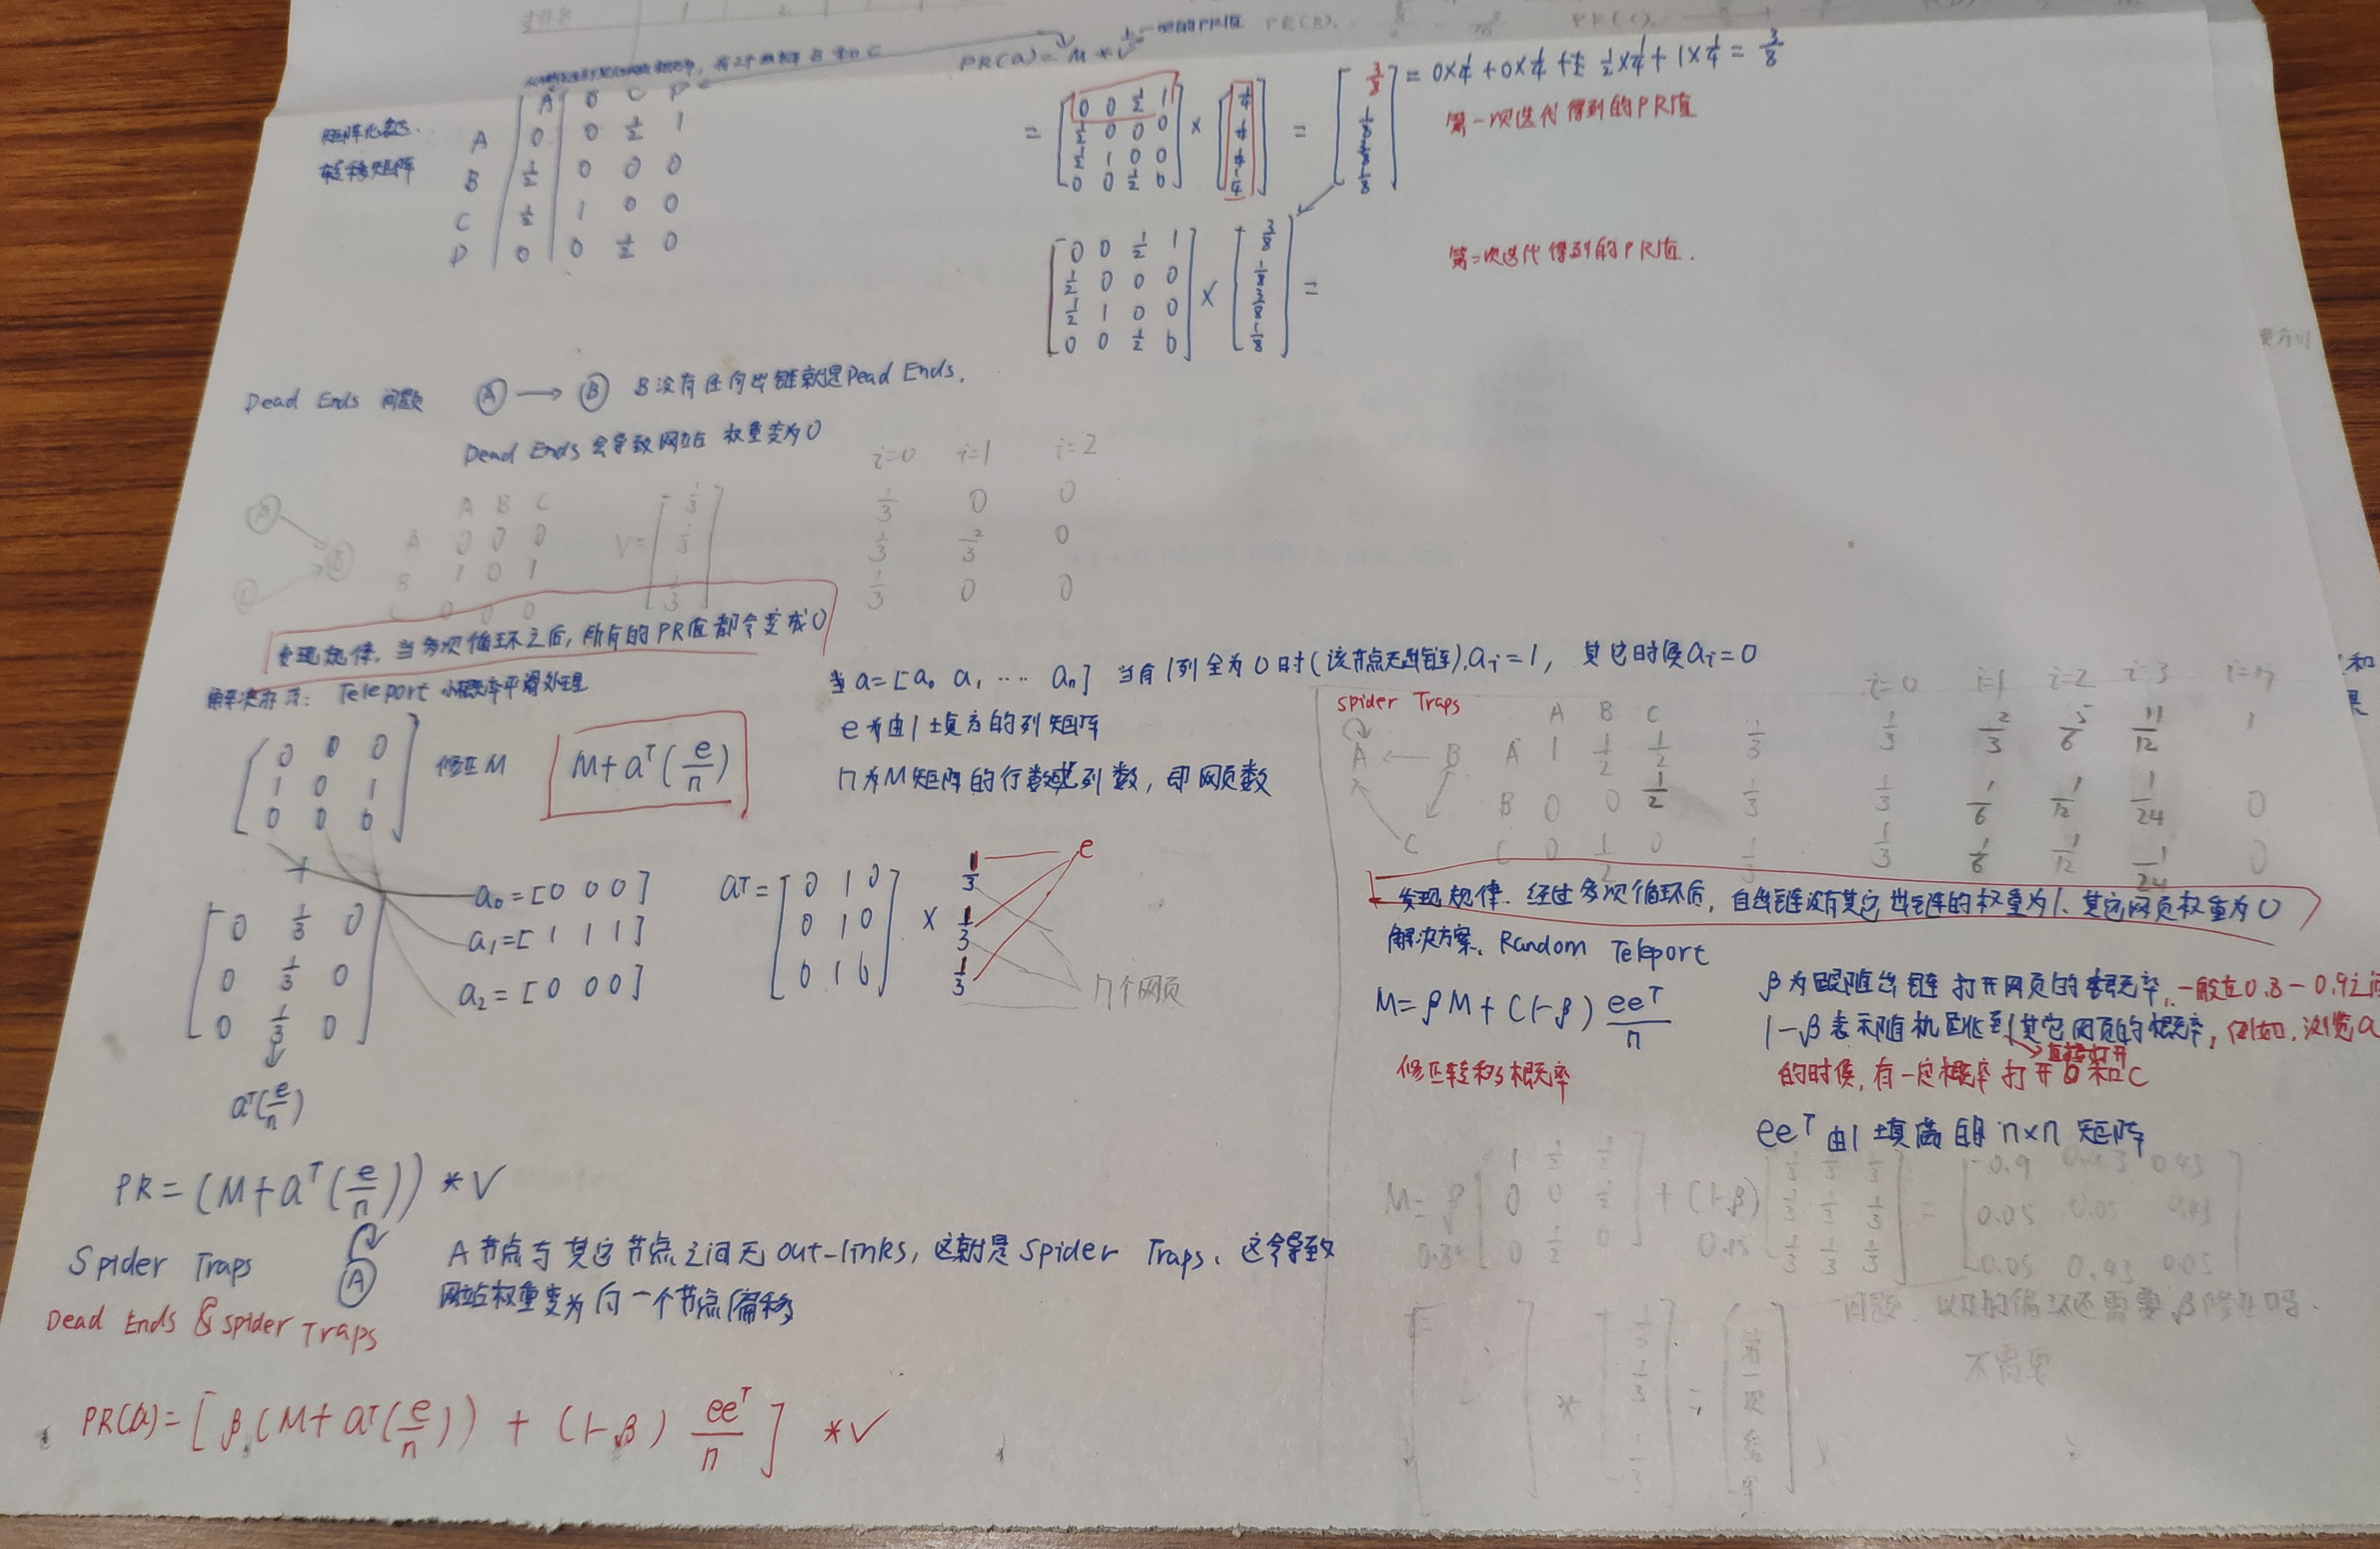 PR(a) = M * V
矩阵化表达
转移矩阵
A B C D
A 0 0 1/2 1
B 1/2 0 0 0
C 1/2 1 0 0
D 0 0 1/2 0
= [0 0 1/2 1; 1/2 0 0 0; 1/2 1 0 0; 0 0 1/2 0] × [1/4; 1/4; 1/4; 1/4] =
= 0×1/4 + 0×1/4 + 1/2×1/4 + 1×1/4 = 3/8
第一次迭代得到的PR值
[0 0 1/2 1; 1/2 0 0 0; 1/2 1 0 0; 0 0 1/2 0] × [3/8; 1/8; 3/8; 1/8] =
第二次迭代得到的PR值.
Dead Ends 问题 A → B B没有任何出链就是Dead Ends.
Dead Ends 会导致网站权重变为0
i=0 i=1 i=2
1/3 0 0
1/3 2/3 0
1/3 0 0
A B C
A 0 0 0
B 1 0 1
C 0 0 0
V = [1/3; 1/3; 1/3]
发现规律, 当多次循环之后, 所有的PR值都会变成0
解决办法: Teleport 小概率平滑处理
[0 0 0; 1 0 1; 0 0 0] 修正M M+aᵀ(e/n)
当 a=[a₀ a₁ ···· aₙ] 当有1列全为0时(该节点无出链), aᵢ=1, 其它时候aᵢ=0
e为由1填充的列矩阵
n为M矩阵的行数或列数, 即网页数
+
[0 1/3 0; 0 1/3 0; 0 1/3 0]
aᵀ(e/n)
a₀=[0 0 0]
a₁=[1 1 1]
a₂=[0 0 0]
aᵀ= [0 1 0; 0 1 0; 0 1 0] × 1/3 1/3 1/3
e
n个网页
PR=(M+aᵀ(e/n)) * V
Spider Traps A
A节点与其它节点之间无out-links, 这就是Spider Traps, 这会导致
网站权重变为向一个节点偏移
Dead Ends & Spider Traps
PR(a)=[β(M+aᵀ(e/n)) + (1-β) eeᵀ/n] *V
Spider Traps
A B C
A 1 1/2 1/2 1/3
B 0 0 1/2 1/3
C 0 1/2 0 1/3
i=0 i=1 i=2 i=3 i=n
1/3 2/3 5/6 11/12 1
1/3 1/6 1/12 1/24 0
1/3 1/6 1/12 1/24 0
发现规律. 经过多次循环后, 自出链没有其它出链的权重为1, 其它网页权重为0
解决方案. Random Teleport
M=βM+(1-β) eeᵀ/n
修正转移概率
β为跟随出链打开网页的概率, 一般在0.8-0.9之间
1-β表示随机跳到其它网页的概率, 例如, 浏览a
直接打开
的时候, 有一定概率打开b和c
eeᵀ由1填满的n×n矩阵
M= β [1 1/2 1/2; 0 0 1/2; 0 1/2 0] + (1-β) [1/3 1/3 1/3; 1/3 1/3 1/3; 1/3 1/3 1/3] =
0.85 0.15
问题. 以后的循环还需要β修正吗.
不需要